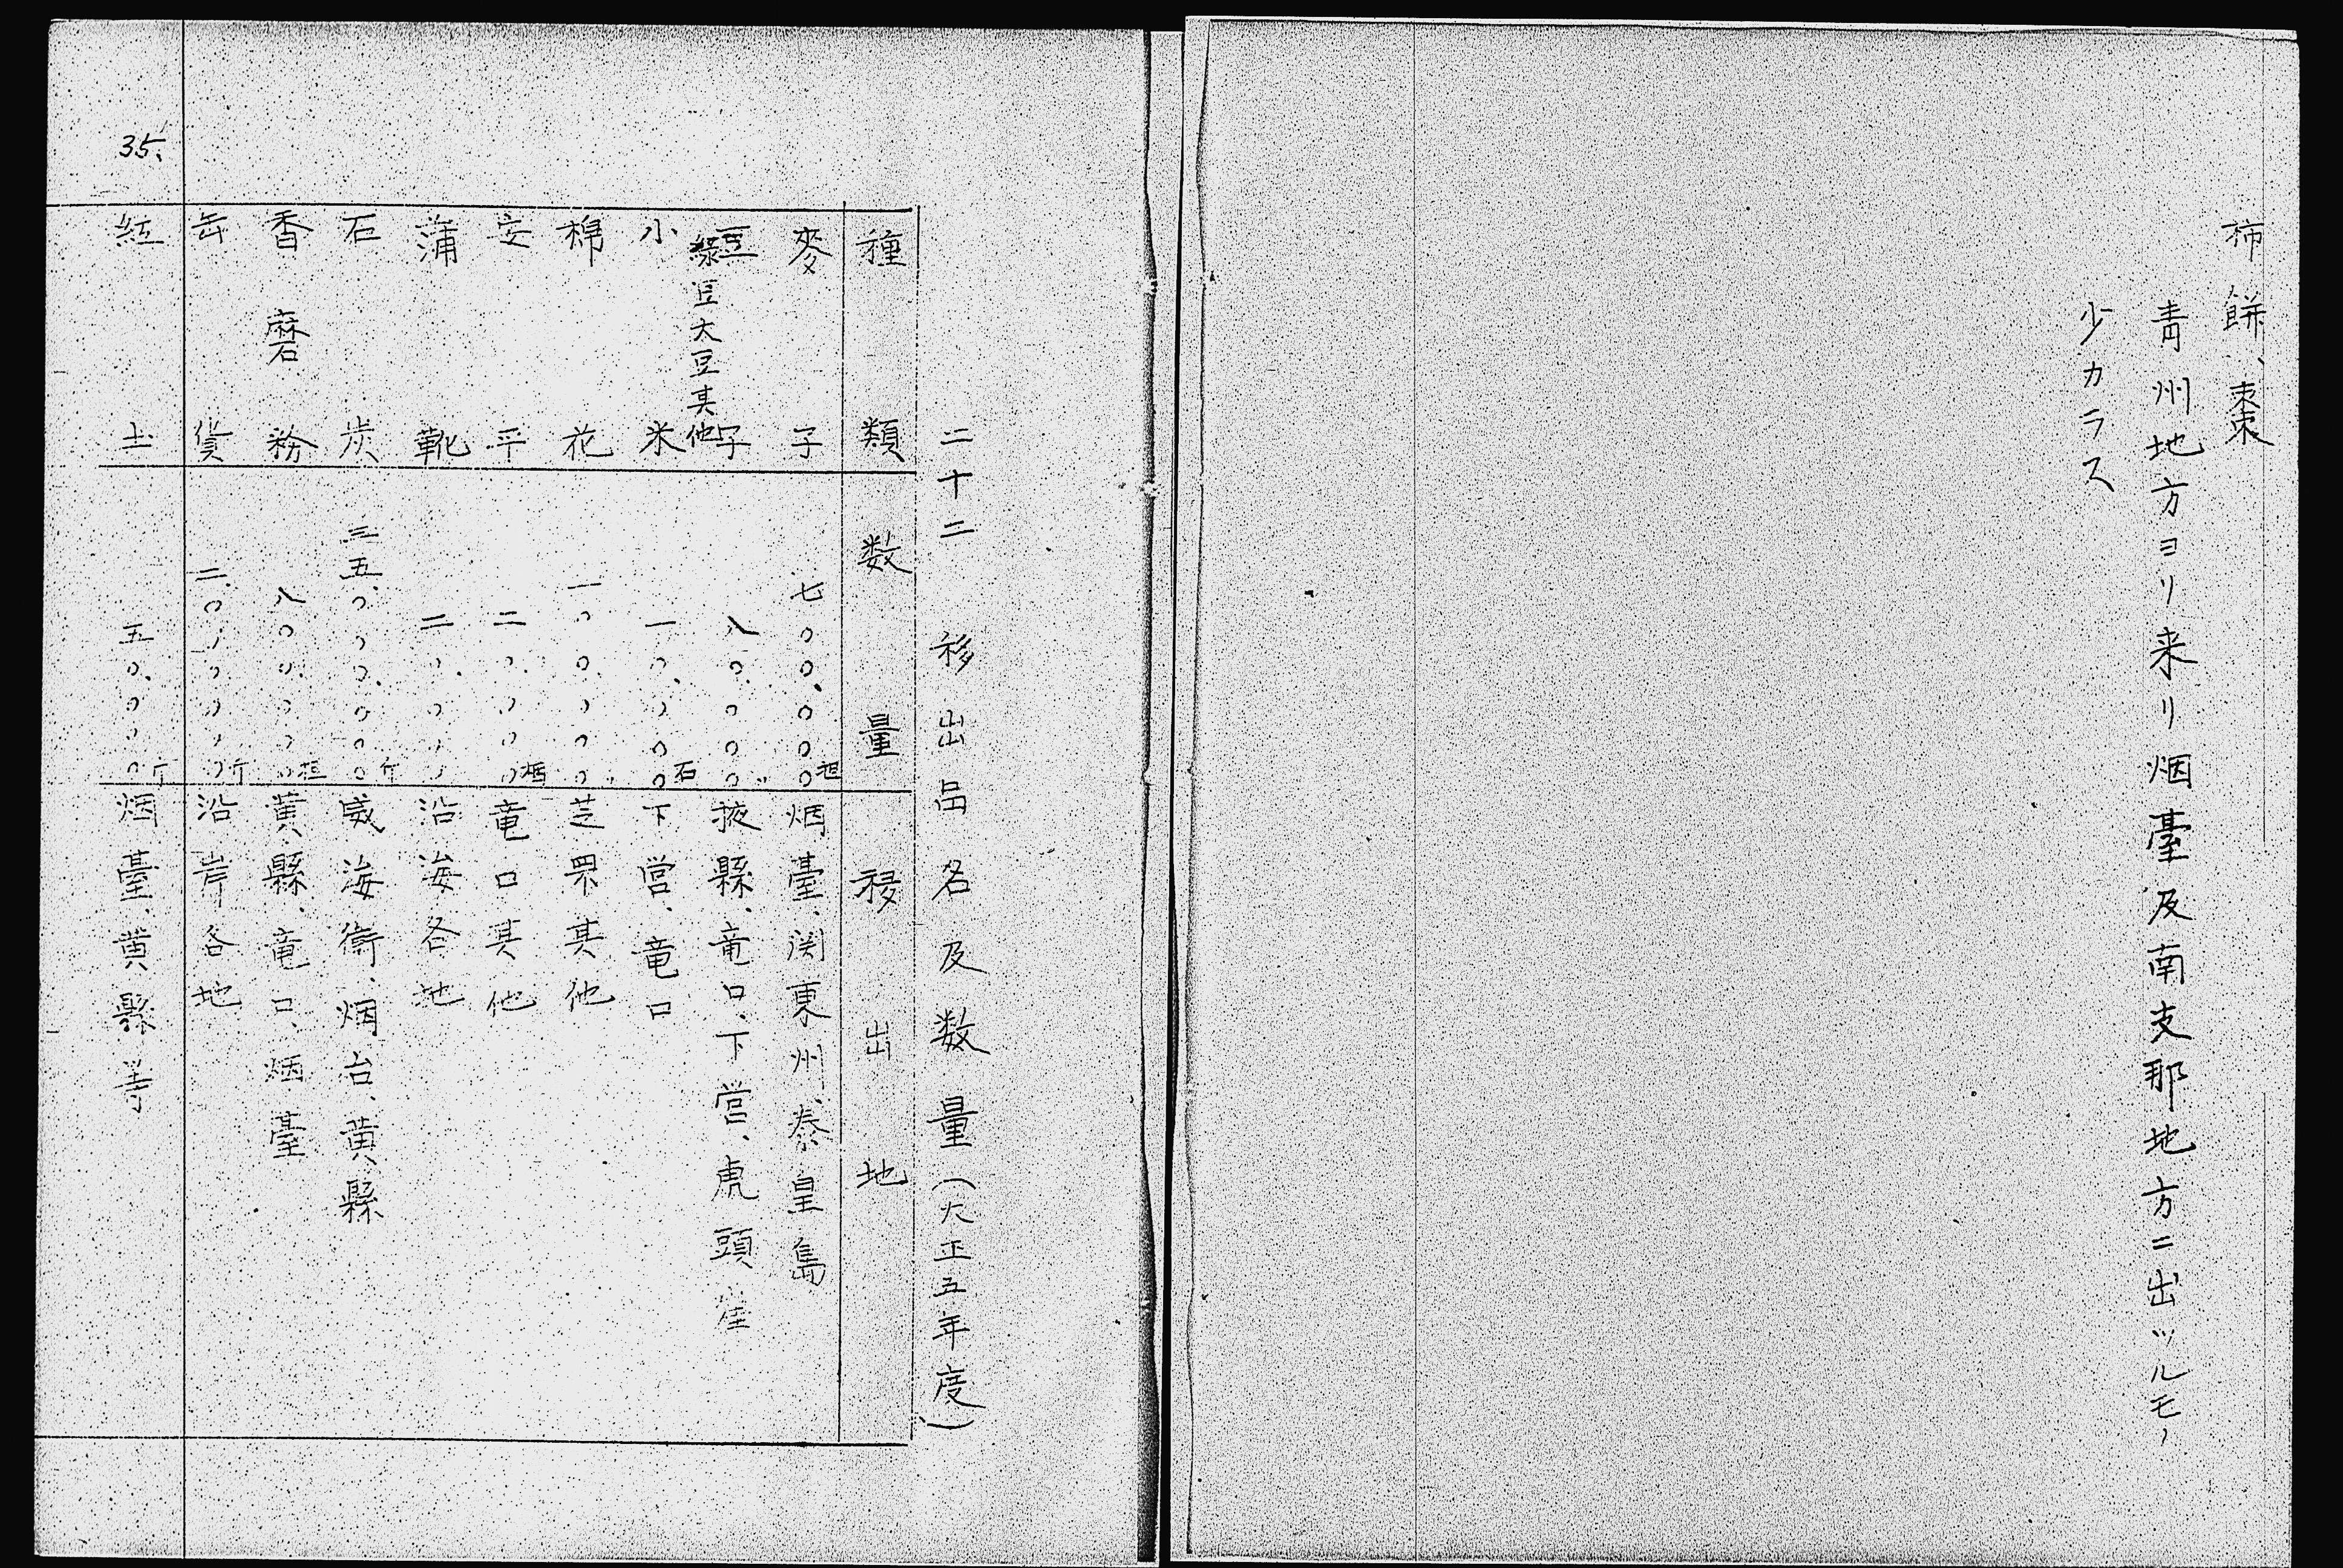 柿餅、棗
青州地方ヨリ来リ烟臺及南支那地方ニ出ツルモノ
少カラス
二十二 移出品名及数量（大正五年度）
種類 数量 移出地
麥子 七〇〇、〇〇〇担 烟臺、関東州、秦皇島
豆子 八〇、〇〇〇〃 掖縣、竜口、下営、虎頭崖
緑豆大豆其他
小米 一〇、〇〇〇石 下営、竜口
棉花 一〇〇〇〇〇〃 芝罘其他
安平 二〇、〇〇〇 竜口其他
蒲靴 二〇、〇〇〇 沿海各地
石炭 三五、〇〇〇、〇〇〇斤 威海衛、烟台、黄縣
香磨粉 八〇〇〇〇〇担 黄縣、竜口、烟臺
缶貨 二、〇〇〇〇〇〇斤 沿岸各地
紅土 五〇、〇〇〇斤 烟臺、黄縣等
35.